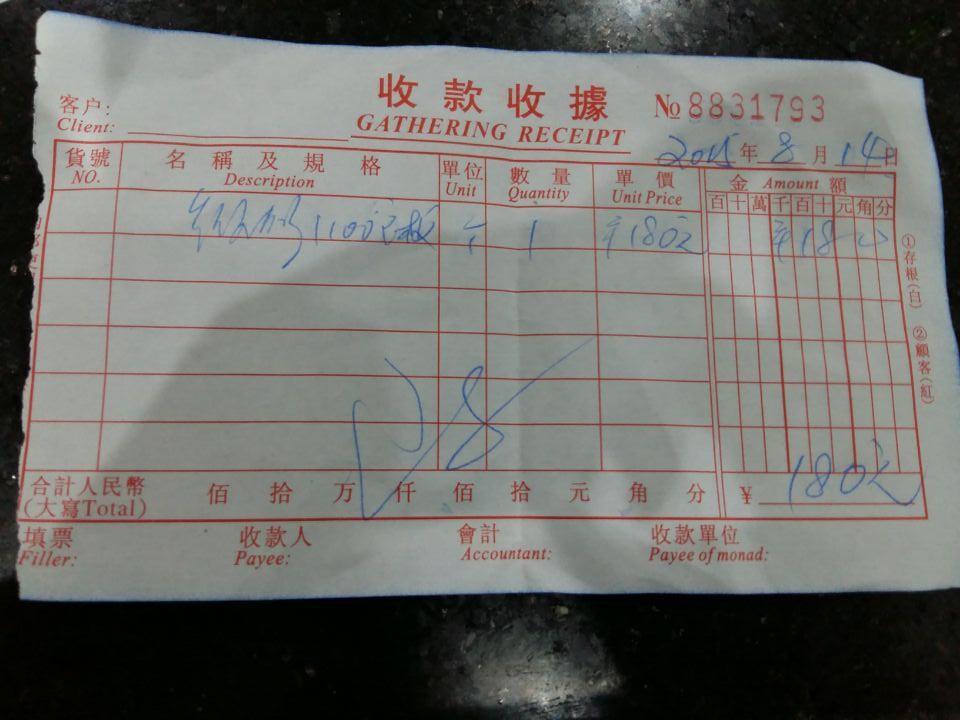 收款收據
GATHERING RECEIPT
№ 8831793
客户:
Client:
2015 年 8 月 14 日
貨號 名稱及規格 單位 數量 單價 金 Amount 額
NO. Description Unit Quantity Unit Price 百 十 萬 千 百 十 元 角 分
1 180元 18
①存根(白) ②顧客(紅)
合計人民幣 佰 拾 万 仟 佰 拾 元 角 分 ¥ 180元
(大寫Total)
填票 收款人 會計 收款單位
Filler: Payee: Accountant: Payee of monad: